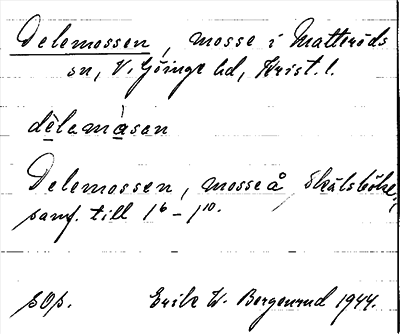 Delemossen, mosse i Matteröds
sn, V. Göinge hd, Krist. l.
dèlamàsan
Delemossen, mosse å Skålsböke,
samf. till 1⁶ – 1¹⁰.
pOp. Erik W. Bergenrud 1944.